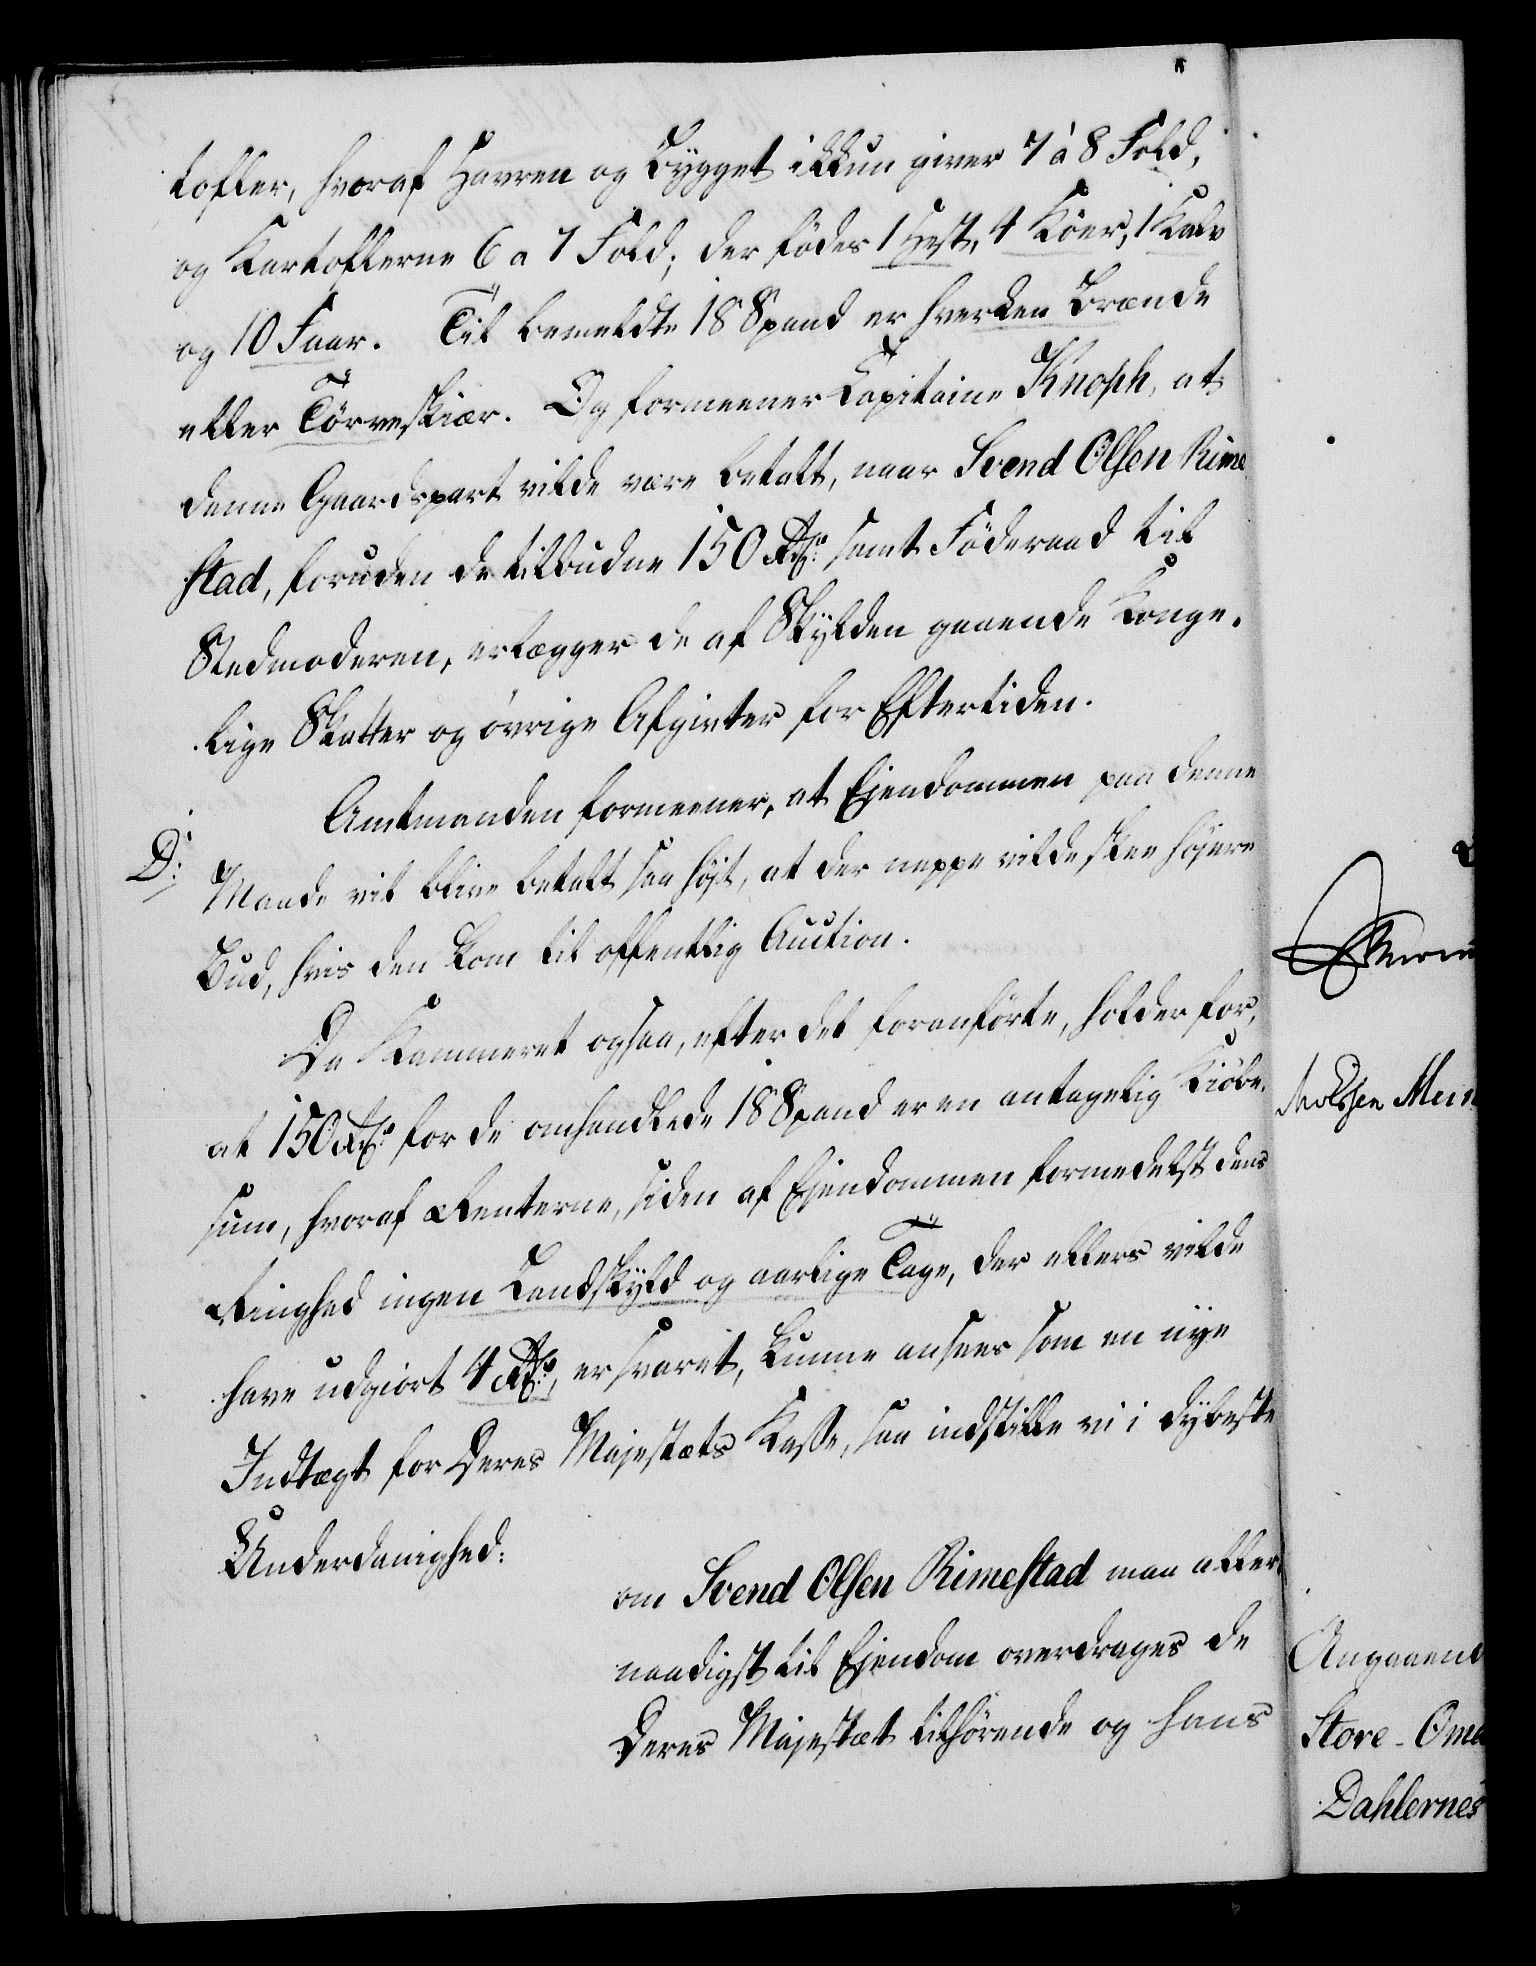 tofler, hvoraf Havren og Bygget ikkun giver 7 à 8 Fold,
og Kartoflerne 6 a 7 Fold; der födes 1 Hest, 4 Köer, 1 Kalv
og 10 Faar. Til bemeldte 18 Spand er hverken Brænde
eller Törveskiær. Og formeener Capitaine Knoph, at
denne Gaardspart vilde være betalt, naar Svend Olsen Rime
stad, foruden de tilbudne 150 Rdr. samt Föderaad til
Stedmoderen, erlægger de af Skylden gaaende Konge-
lige Skatter og övrige Afgivter for Eftertiden.
Amtmanden formeener, at Ejendommen paa denne
D:
Maade vil blive betalt saa höjt, at der neppe vilde skee höjere
Bud, hvis den kom til offentlig Auction.
Da Kammeret ogsaa, efter det foranförte, holder for,
at 150 Rdr. for de omhandlede 18 Spand er en antagelig Kiöbe-
sum, hvoraf Renterne, siden af Ejendommen formedelst dens
Ringhed ingen Landskyld og aarlige Tage, der ellers vilde
have udgiort 4 Rdr., er svaret, kunne ansees som en nye
Indtægt for Deres Majestæts Kasse, saa indstille vi i dybeste
Underdanighed:
om Svend Olsen Rimestad maa aller-
naadigst til Ejendom overdrages de
Deres Majestæt tilhörende og hans
Angaaend
Store-Om
Dahlernes